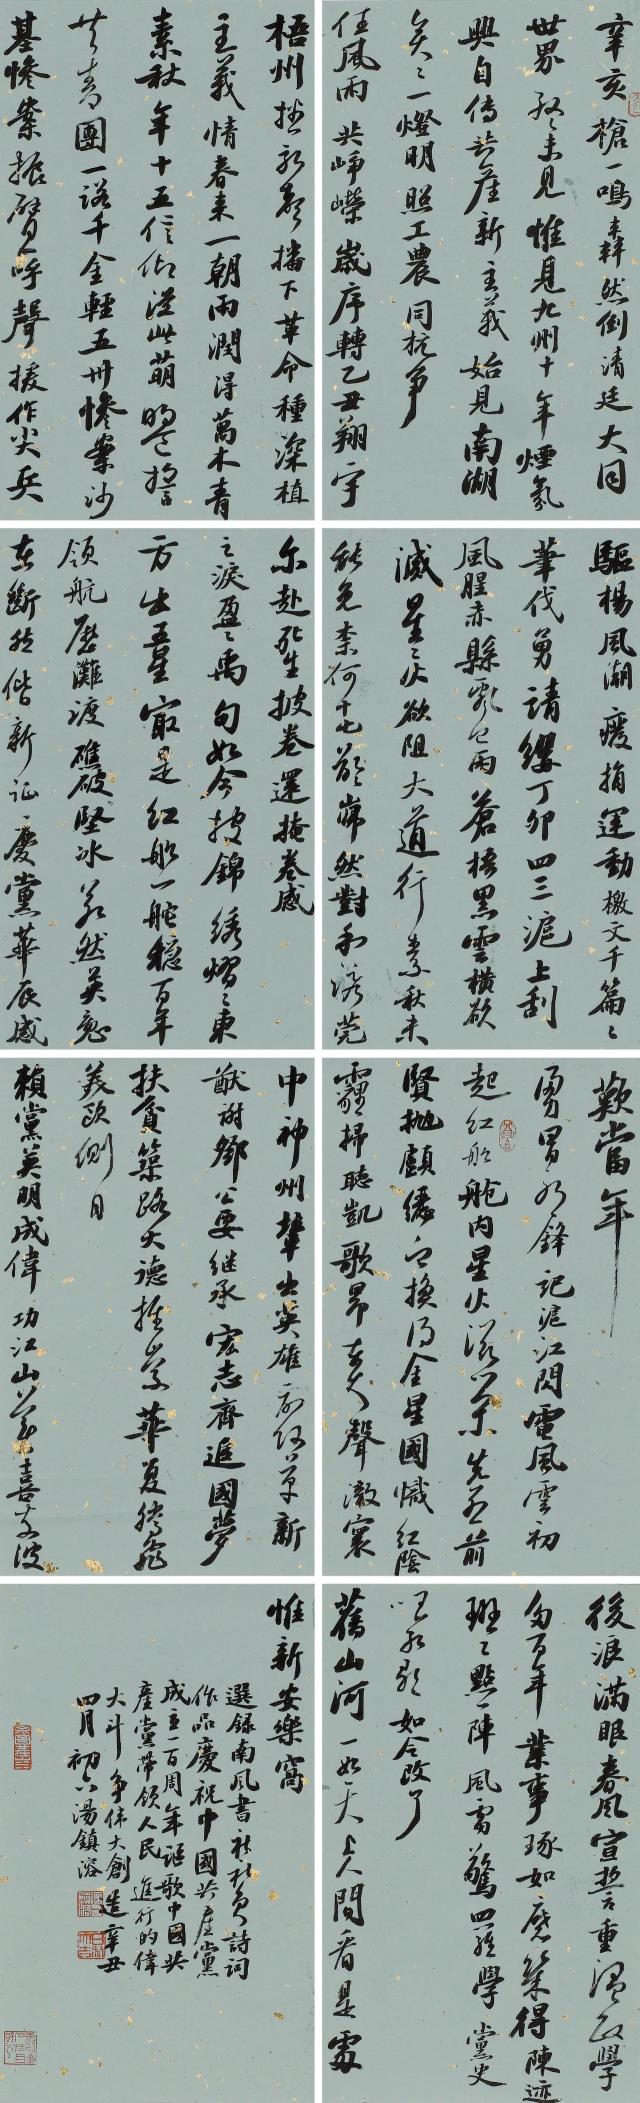 辛亥槍一鳴轟然倒清廷大同
世界夢未見惟見九州十年煙氛
興自傳共產新主義始見南湖
熒〻一燈明照工農同抗爭
佳風雨共崢嶸歲序轉乙丑翔宇
梧州播下革命種深植
主義情春來一朝雨潤得萬木青
素秋年十五信仰從此萌誓言
共青團一諾千金輕五卅慘案沙
基慘案振臂呼聲援作尖兵
驅楊風潮廢捐運動檄文千篇〻
華伐勇請纓丁卯四三滬上刮
風腥赤縣亂山雨蒼梧黑雲橫欲
滅星〻火欲阻大道行素秋未
能免奈何十七齡嶄然對
尔赴死生披卷還掩卷感
之淚盈〻禹甸如今披錦繡熠〻東
方出五星最是紅船一舵穩百年
領航歷灘渡礁破堅冰若然英魂
在斷然偕新征慶黨華辰感
歎當年
勇冒刃鋒記滬江閃電風雲初
起紅船艙內星火先烈前
賢拋顱灑血換得金星國幟紅陰
霾掃聽凱歌昂奮人聲激寰
中神州輩出英雄創伍革新
猷謝鄧公要繼承宏志齊追國夢
扶貧築路大德推崇華夏騰飛
美歐側目
賴黨英明成偉功江山萬喜友後
後浪滿眼春風宣誓重溫敎學
勿百年業事琢如磨築得陳迹
斑〻點一陣風雷驚四筵學黨史
如今改了
舊山河一如天上人間看是處
惟新安樂窩
選錄南風書社社員詩詞
作品慶祝中國共產黨
成立一百周年謳歌中國共
產黨帶領人民進行的偉
大斗爭偉大創造辛丑
四月初六湯鎮溶